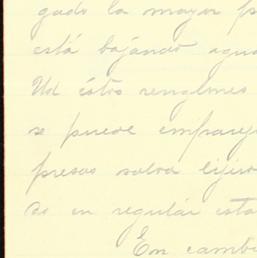 gado la mayor p
está bajando agua
Ud éstos renglones
se puede emparej
presas salva lijero
do en regular esta
En cambi